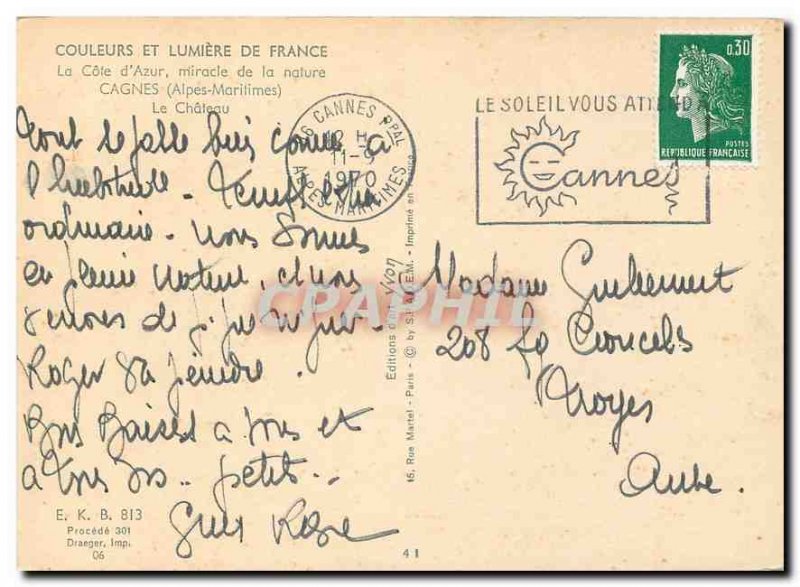 COULEURS ET LUMIÈRE DE FRANCE
La Côte d'Azur, miracle de la nature
CAGNES (Alpes-Maritimes)
Le Château
Tout se passe bien comme à
l'habitude. Temps extra
ordinaire. Nous sommes
en pleine nature, et nous
de
Roger va peindre.
Bons Baisers a tous et
a tous vos.. petits..
E. K. B. 813
Procédé 301
Draeger, Imp.
06
06 CANNES PPAL
12 H
11-9
1970
ALPES MARITIMES
LE SOLEIL VOUS ATTEND A
Cannes
0,30
POSTES
REPUBLIQUE FRANÇAISE
Editions d'art Yvon
15, Rue Martel - Paris - © by S.P.A.D.E.M. - Imprimé en France
41
CPAPHIL
Madame
208
Troyes
Aube.